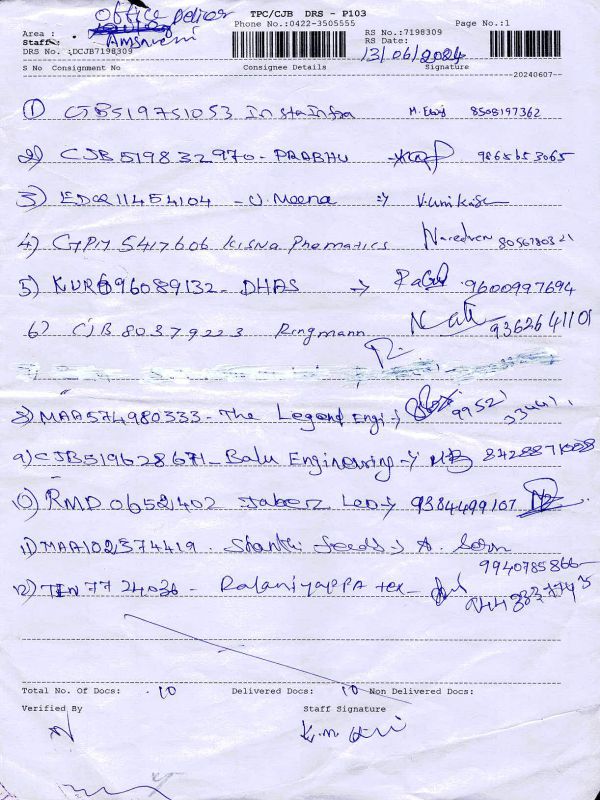 office Delivery
TPC/CJB DRS - P103
Phone No.:0422-3505555
Page No.:1
Area :
Staff: Amsaveni
DRS No. :DCJB7198309
RS No.:7198309
RS Date:
13/06/2024
S No Consignment No Consignee Details Signature
--20240607--
1) CJB519751053 Insta Infra M. 8508197362
2) CJB519832970 - PRABHU 9865653065
3) 11454104 - U. Meena
4) 5417606 Kisna Phematics Naredren 8056780321
5) KUR696089132 - DHAS 9600997694
6) CJB80379223 Ringmann 9362641101
8) MAA574980333 - The Legend Engi 99521
9) CJB519628671 - Balu Engineering 8428871008
10) RMD0652402 Jaberz Leo 9384499107
11) MAA102374419 . Shanthi Seeds A.
9940785866
12) TEN7724036 - Palaniyappa tex
Total No. Of Docs: 10 Delivered Docs: 10 Non Delivered Docs:
Verified By Staff Signature